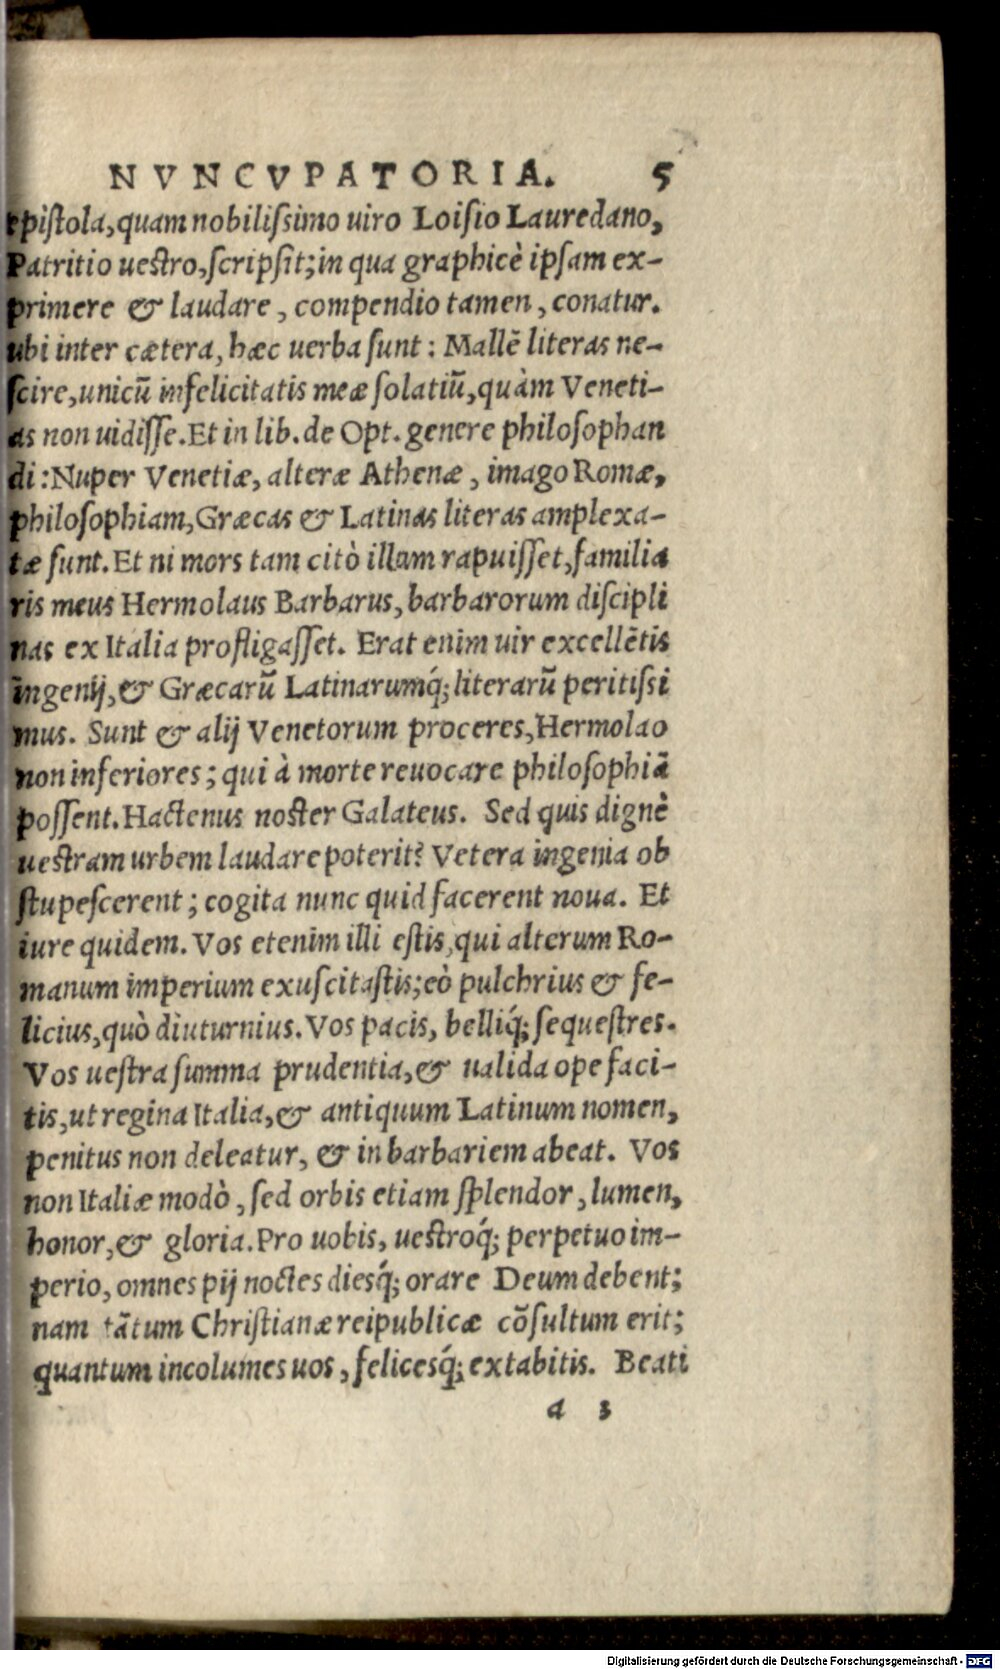 NVNCVPATORIA. 5
epiſtola, quam nobiliſsimo uiro Loiſio Lauredano,
Patritio ueſtro, ſcripſit; in qua graphicè ipſam ex-
primere & laudare, compendio tamen, conatur.
ubi inter cætera, hæc uerba ſunt: Mallẽ literas ne-
ſcire, unicũ infelicitatis meæ ſolatiũ, quàm Veneti-
as non uidiſſe. Et in lib. de Opt. genere philoſophan
di: Nuper Venetiæ, alteræ Athenæ, imago Romæ,
philoſophiam, Græcas & Latinas literas amplexa-
tæ ſunt. Et ni mors tam citò illum rapuiſſet, familia
ris meus Hermolaus Barbarus, barbarorum diſcipli
nas ex Italia profligaſſet. Erat enim uir excellẽtis
ingenij, & Græcarũ Latinarumq́; literarũ peritiſsi
mus. Sunt & alij Venetorum proceres, Hermolao
non inferiores; qui à morte reuocare philoſophiã
poſſent. Hactenus noſter Galateus. Sed quis dignè
ueſtram urbem laudare poterit? Vetera ingenia ob
ſtupeſcerent; cogita nunc quid facerent noua. Et
iure quidem. Vos etenim illi eſtis, qui alterum Ro-
manum imperium exuſcitaſtis; eò pulchrius & fe-
licius, quò diuturnius. Vos pacis, belliq́; ſequeſtres.
Vos ueſtra ſumma prudentia, & ualida ope faci-
tis, ut regina Italia, & antiquum Latinum nomen,
penitus non deleatur, & in barbariem abeat. Vos
non Italiæ modò, ſed orbis etiam ſplendor, lumen,
honor, & gloria. Pro uobis, ueſtroq́; perpetuo im-
perio, omnes pij noctes diesq́; orare Deum debent;
nam tãtum Chriſtianæ reipublicæ cõſultum erit;
quantum incolumes uos, felicesq́; extabitis. Beati
a 3
Digitalisierung gefördert durch die Deutsche Forschungsgemeinschaft - DFG